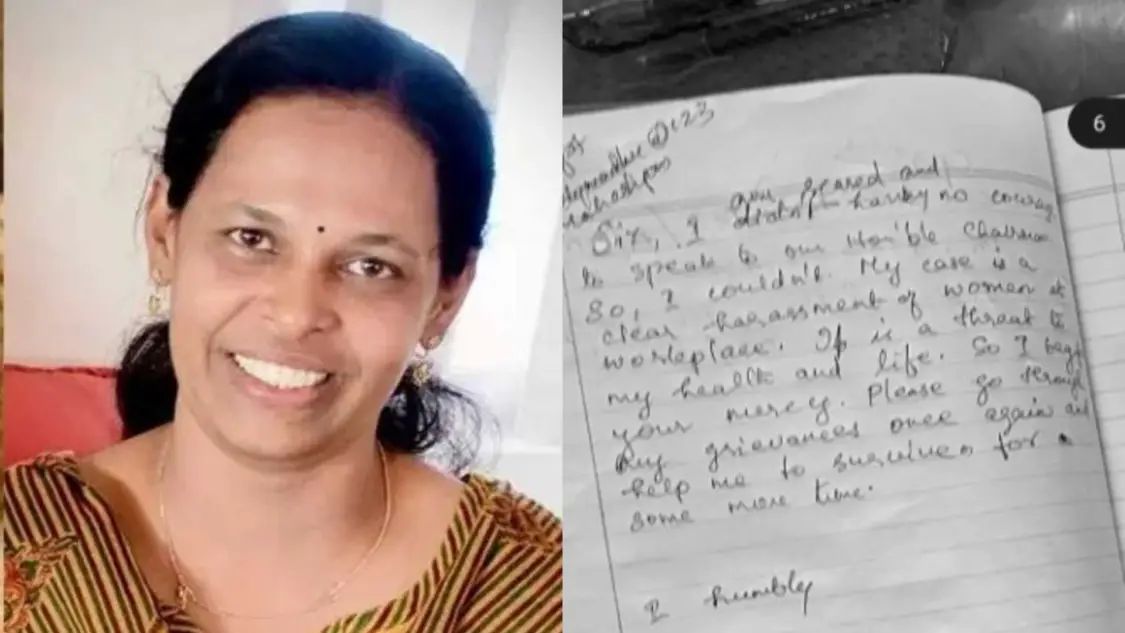 Sir, I am scared and
didn't having no courag
to speak to our Hon'ble Chairman
So, I couldn't. My case is a
clear harassment of women at
workplace. It is a threat to
my health and life. So I begg
your mercy. Please go through
my grievances once again and
help me to survive for
some more time.
I humbly
6